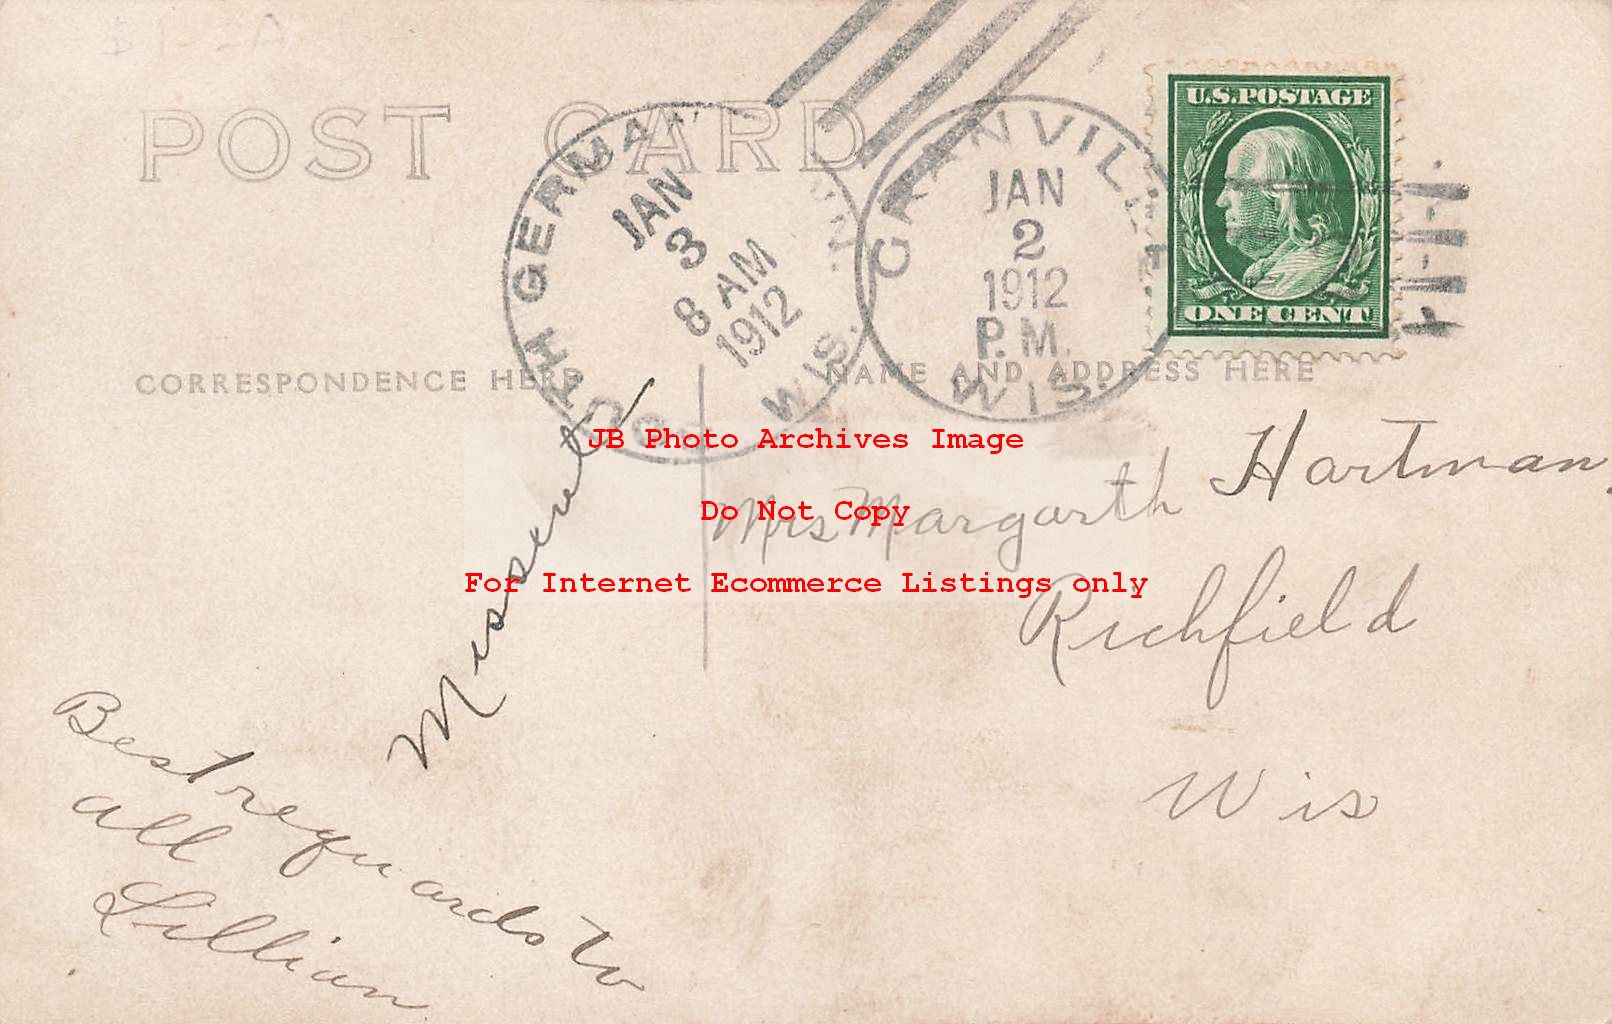 POST CARD
U.S. POSTAGE
ONE CENT
SOUTH GERMAN
JAN
3
8 AM
1912
WIS.
GRANVILLE
JAN
2
1912
P.M.
WIS.
CORRESPONDENCE HERE
NAME AND ADDRESS HERE
JB Photo Archives Image
Do Not Copy
For Internet Ecommerce Listings only
Mrs Margarth Hartman,
Richfield
Wis
Best reguards to
all
Lillian